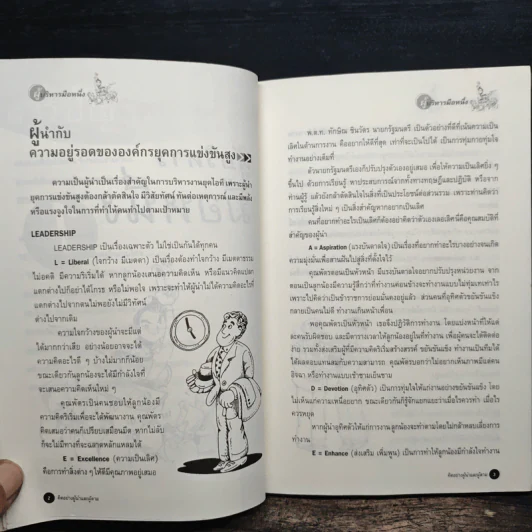 ผู้บริหารมือหนึ่ง
ผู้นำกับ
ความอยู่รอดขององค์กรยุคการแข่งขันสูง
ความเป็นผู้นำเป็นเรื่องสำคัญในการบริหารงานยุคไอที เพราะผู้นำ
ยุคการแข่งขันสูงต้องกล้าตัดสินใจ มีวิสัยทัศน์ ทันต่อเหตุการณ์ และมีพลัง
หรือแรงจูงใจในการที่ทำให้คนทำไปตามเป้าหมาย
LEADERSHIP
LEADERSHIP เป็นเรื่องเฉพาะตัว ไม่ใช่เป็นกันได้ทุกคน
L = Liberal (ใจกว้าง มีเมตตา) เป็นเรื่องต้องทำใจกว้าง มีเมตตาธรรม
ไม่อคติ มีความริเริ่มได้ หากลูกน้องเสนอความคิดเห็น หรือมีแนวคิดแปลก
แตกต่างไปก็อย่าได้โกรธ หรือไม่พอใจ เพราะจะทำให้ผู้นำไม่ได้ความคิดอะไรที่
แตกต่างไปจากตนไม่พอยังไม่มีวิทัศน์
ต่างไปจากเดิม
ความใจกว้างของผู้นำจะมีแต่
ได้มากกว่าเสีย อย่างน้อยอาจจะได้
ความคิดอะไรดี ๆ บ้างไม่มากก็น้อย
ขณะเดียวกันลูกน้องจะได้มีกำลังใจที่
จะเสนอความคิดเห็นใหม่ ๆ
คุณพัตรเป็นคนชอบให้ลูกน้องมี
ความคิดริเริ่มเพื่อจะได้พัฒนางาน คุณพัตร
คิดเสมอว่าคนก็เปรียบเสมือนมีด หากไม่ลับ
ก็จะไม่มีทางที่จะแสกตหลักแหลมได้
E = Excellence (ความเป็นเลิศ)
คือการทำสิ่งต่าง ๆ ให้ดีมีคุณภาพอยู่เสมอ
2 คิดอย่างผู้นำและผู้ตาม
ผู้บริหารมือหนึ่ง
พ.ต.ท. ทักษิณ ชินวัตร นายกรัฐมนตรี เป็นตัวอย่างที่ดีที่เน้นความเป็น
เลิศในด้านการงาน คืออยากให้ดีที่สุด เท่าที่จะเป็นไปได้ เป็นการทุ่มกายทุ่มใจ
ทำงานอย่างเต็มที่
ตัวนายกรัฐมนตรีเองก็ปรับปรุงตัวเองอยู่เสมอ เพื่อให้ความเป็นเลิศยิ่ง ๆ
ขึ้นไป ด้วยการเรียนรู้ หาประสบการณ์จากทั้งทางทฤษฎีและปฏิบัติ หรือจาก
ท่านผู้รู้ แล้วยังกล้าตัดสินใจในสิ่งที่เป็นประโยชน์ต่อส่วนรวม เพราะท่านคิดว่า
การเรียนรู้สิ่งใหม่ ๆ เป็นสิ่งที่จะพาเราเป็นเลิศ
คนที่อยากทำอะไรเป็นเลิศก็ต้องอย่าคิดว่าตัวเองเลอเลิศนี่คือคุณสมบัติที่
สำคัญของผู้นำ
A = Aspiration (แรงบันดาลใจ) เป็นเรื่องที่อยากทำอะไรบางอย่างจนเกิด
ความมุ่งมั่นเพื่อสานฝันไปสู่สิ่งที่ตั้งใจไว้
คุณพัตรตอนเป็นหัวหน้า มีแรงบันดาลใจอยากปรับปรุงหน่วยงาน จาก
ตอนเป็นลูกน้องมีความรู้สึกว่าที่ทำงานค่อนข้างจะทำงานแบบไม่ทุ่มเทเท่าไร
เพราะไปคิดว่าเป็นข้าราชการย่อมมั่นคงอยู่แล้ว ส่วนคนที่อุทิศตัวขยันขันแข็ง
กลายเป็นคนไม่ดี ทำงานเกินหน้าเพื่อน
พอคุณพัตรเป็นหัวหน้า เธอจึงปฏิวัติการทำงาน โดยแบ่งหน้าที่ให้แต่
ละคนรับผิดชอบ และมีตารางเวลาให้ลูกน้องอยู่ในที่ทำงาน เพื่อผู้คนจะได้ติดต่อ
ง่าย รวมทั้งส่งเสริมผู้ที่มีความคิดริเริ่มสร้างสรรค์ ขยันขันแข็ง ทำงานเกินตัวได้
ได้ผลตอบแทนสมกับความสามารถ คุณพัตรบอกว่าไม่อยากเห็นภาพมีแต่คน
อิจฉา หรือทำงานแบบเช้าชามเย็นชาม
D = Devotion (อุทิศตัว) เป็นการทุ่มใจให้แก่งานอย่างขยันขันแข็ง โดย
ไม่เห็นแก่ความเหนื่อยยาก ขณะเดียวกันก็รู้จักแยกแยะว่าเมื่อไรควรทำ เมื่อไร
ควรหยุด
หากผู้นำอุทิศตัวให้แก่การงานลูกน้องจะทำตามโดยไม่กล้าหลบเลี่ยงการ
ทำงาน
E = Enhance (ส่งเสริม เพิ่มพูน) เป็นการทำให้ลูกน้องมีกำลังใจทำงาน
คิดอย่างผู้นำและผู้ตาม 3